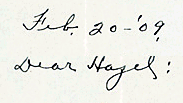 Feb. 20-'09
Dear Hazel: